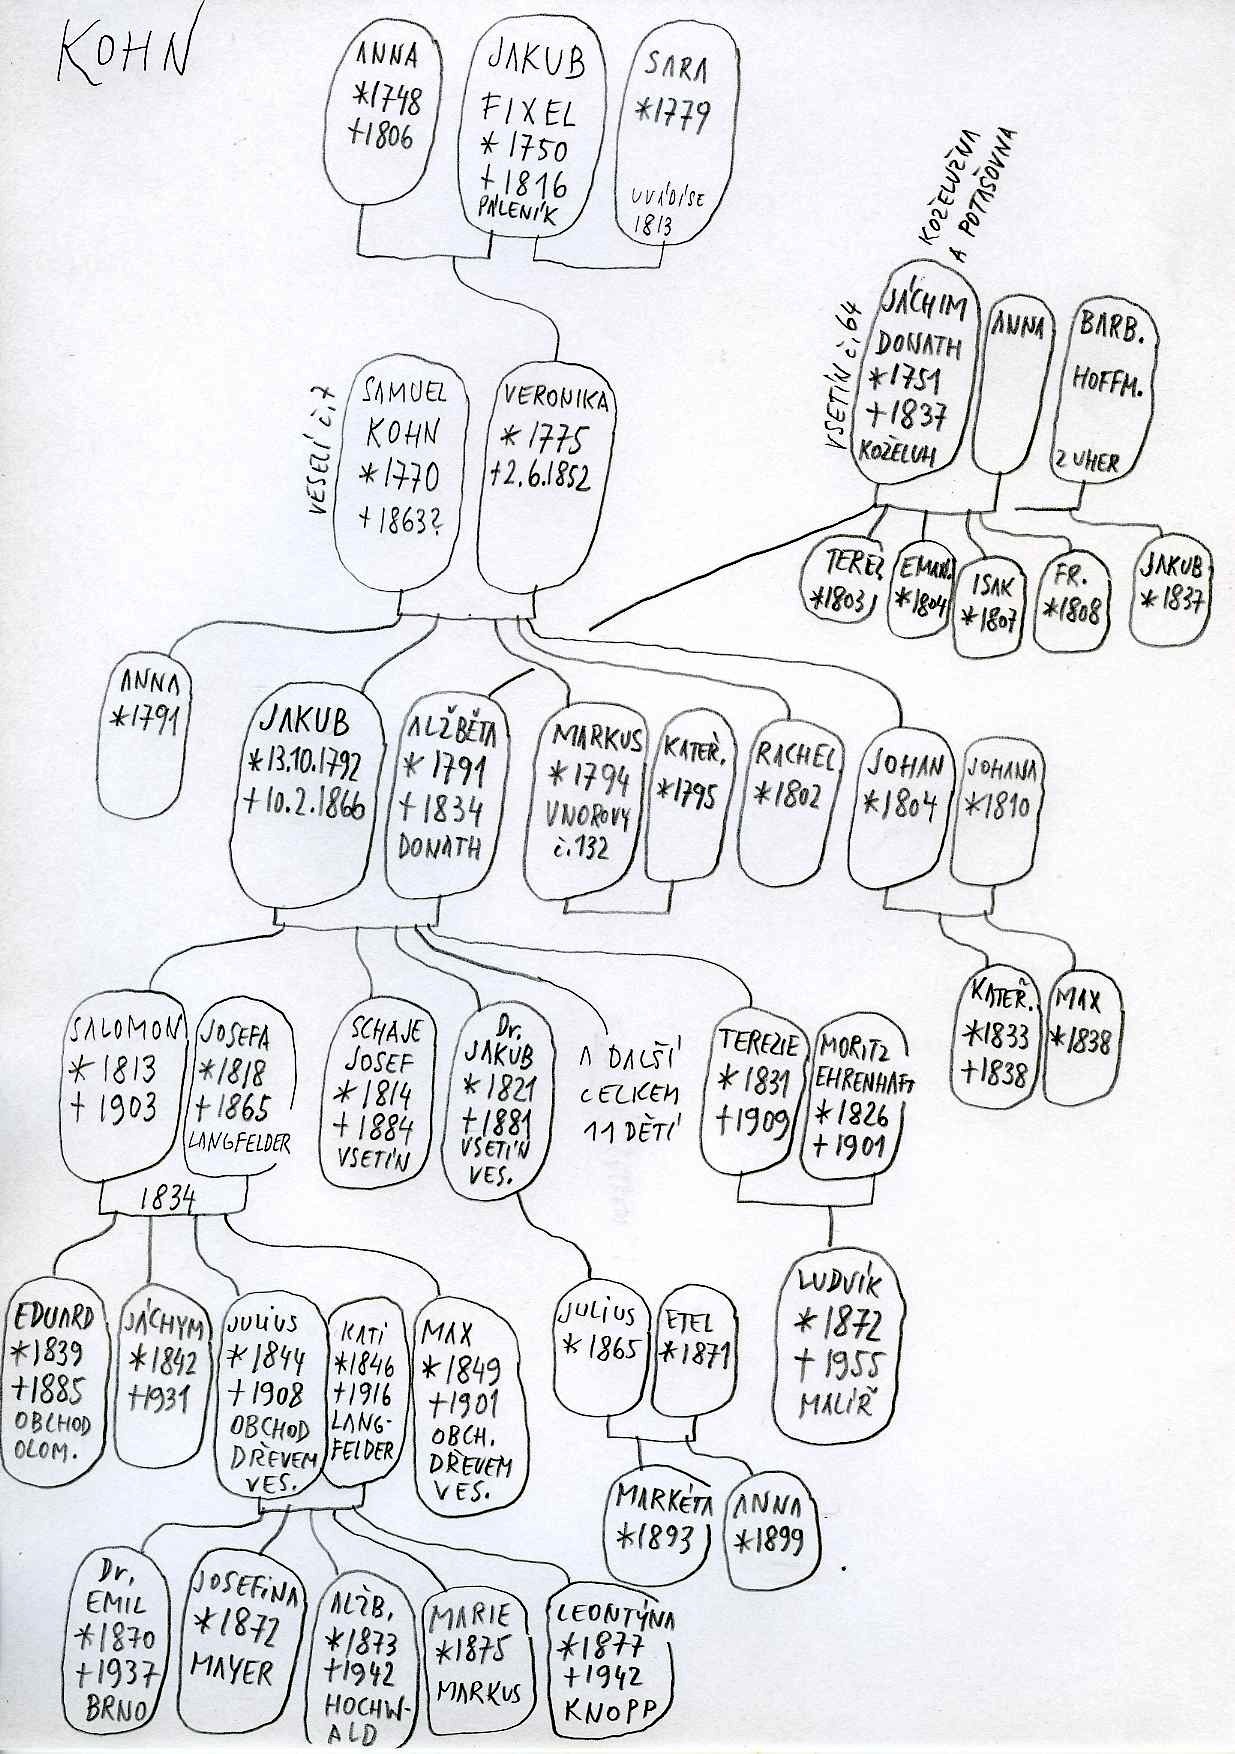 KOHN
ANNA
*1748
+1806
JAKUB
FIXEL
*1750
+1816
PÁLENÍK
SARA
*1779
UVÁDÍ SE
1813
KOŽELUŽNA
A POTAŠOVNA
VSETÍN č.64
JÁCHIM
DONATH
*1751
+1837
KOŽELUH
ANNA
BARB.
HOFFM.
Z UHER
VESELÍ č.7
SAMUEL
KOHN
*1770
+1863?
VERONIKA
*1775
+2.6.1852
TEREZ.
*1803
EMAN.
*1804
ISAK
*1807
FR.
*1808
JAKUB
*1837
ANNA
*1791
JAKUB
*13.10.1792
+10.2.1866
ALŽBĚTA
*1791
+1834
DONATH
MARKUS
*1794
VNOROVY
č.132
KATEŘ.
*1795
RACHEL
*1802
JOHAN
*1804
JOHANA
*1810
KATEŘ.
*1833
+1838
MAX
*1838
SALOMON
*1813
+1903
JOSEFA
*1818
+1865
LANGFELDER
1834
SCHAJE
JOSEF
*1814
+1884
VSETÍN
Dr.
JAKUB
*1821
+1881
VSETÍN
VES.
A DALŠÍ
CELKEM
11 DĚTÍ
TEREZIE
*1831
+1909
MORITZ
EHRENHAFT
*1826
+1901
EDUARD
*1839
+1885
OBCHOD
OLOM.
JÁCHYM
*1842
+1931
JULIUS
*1844
+1908
OBCHOD
DŘEVEM
VES.
KATI
*1846
+1916
LANG-
FELDER
MAX
*1849
+1901
OBCH.
DŘEVEM
VES.
JULIUS
*1865
ETEL
*1871
LUDVÍK
*1872
+1955
MALÍŘ
MARKÉTA
*1893
ANNA
*1899
Dr.
EMIL
*1870
+1937
BRNO
JOSEFINA
*1872
MAYER
ALŽB.
*1873
+1942
HOCHW-
ALD
MARIE
*1875
MARKUS
LEONTÝNA
*1877
+1942
KNOPP